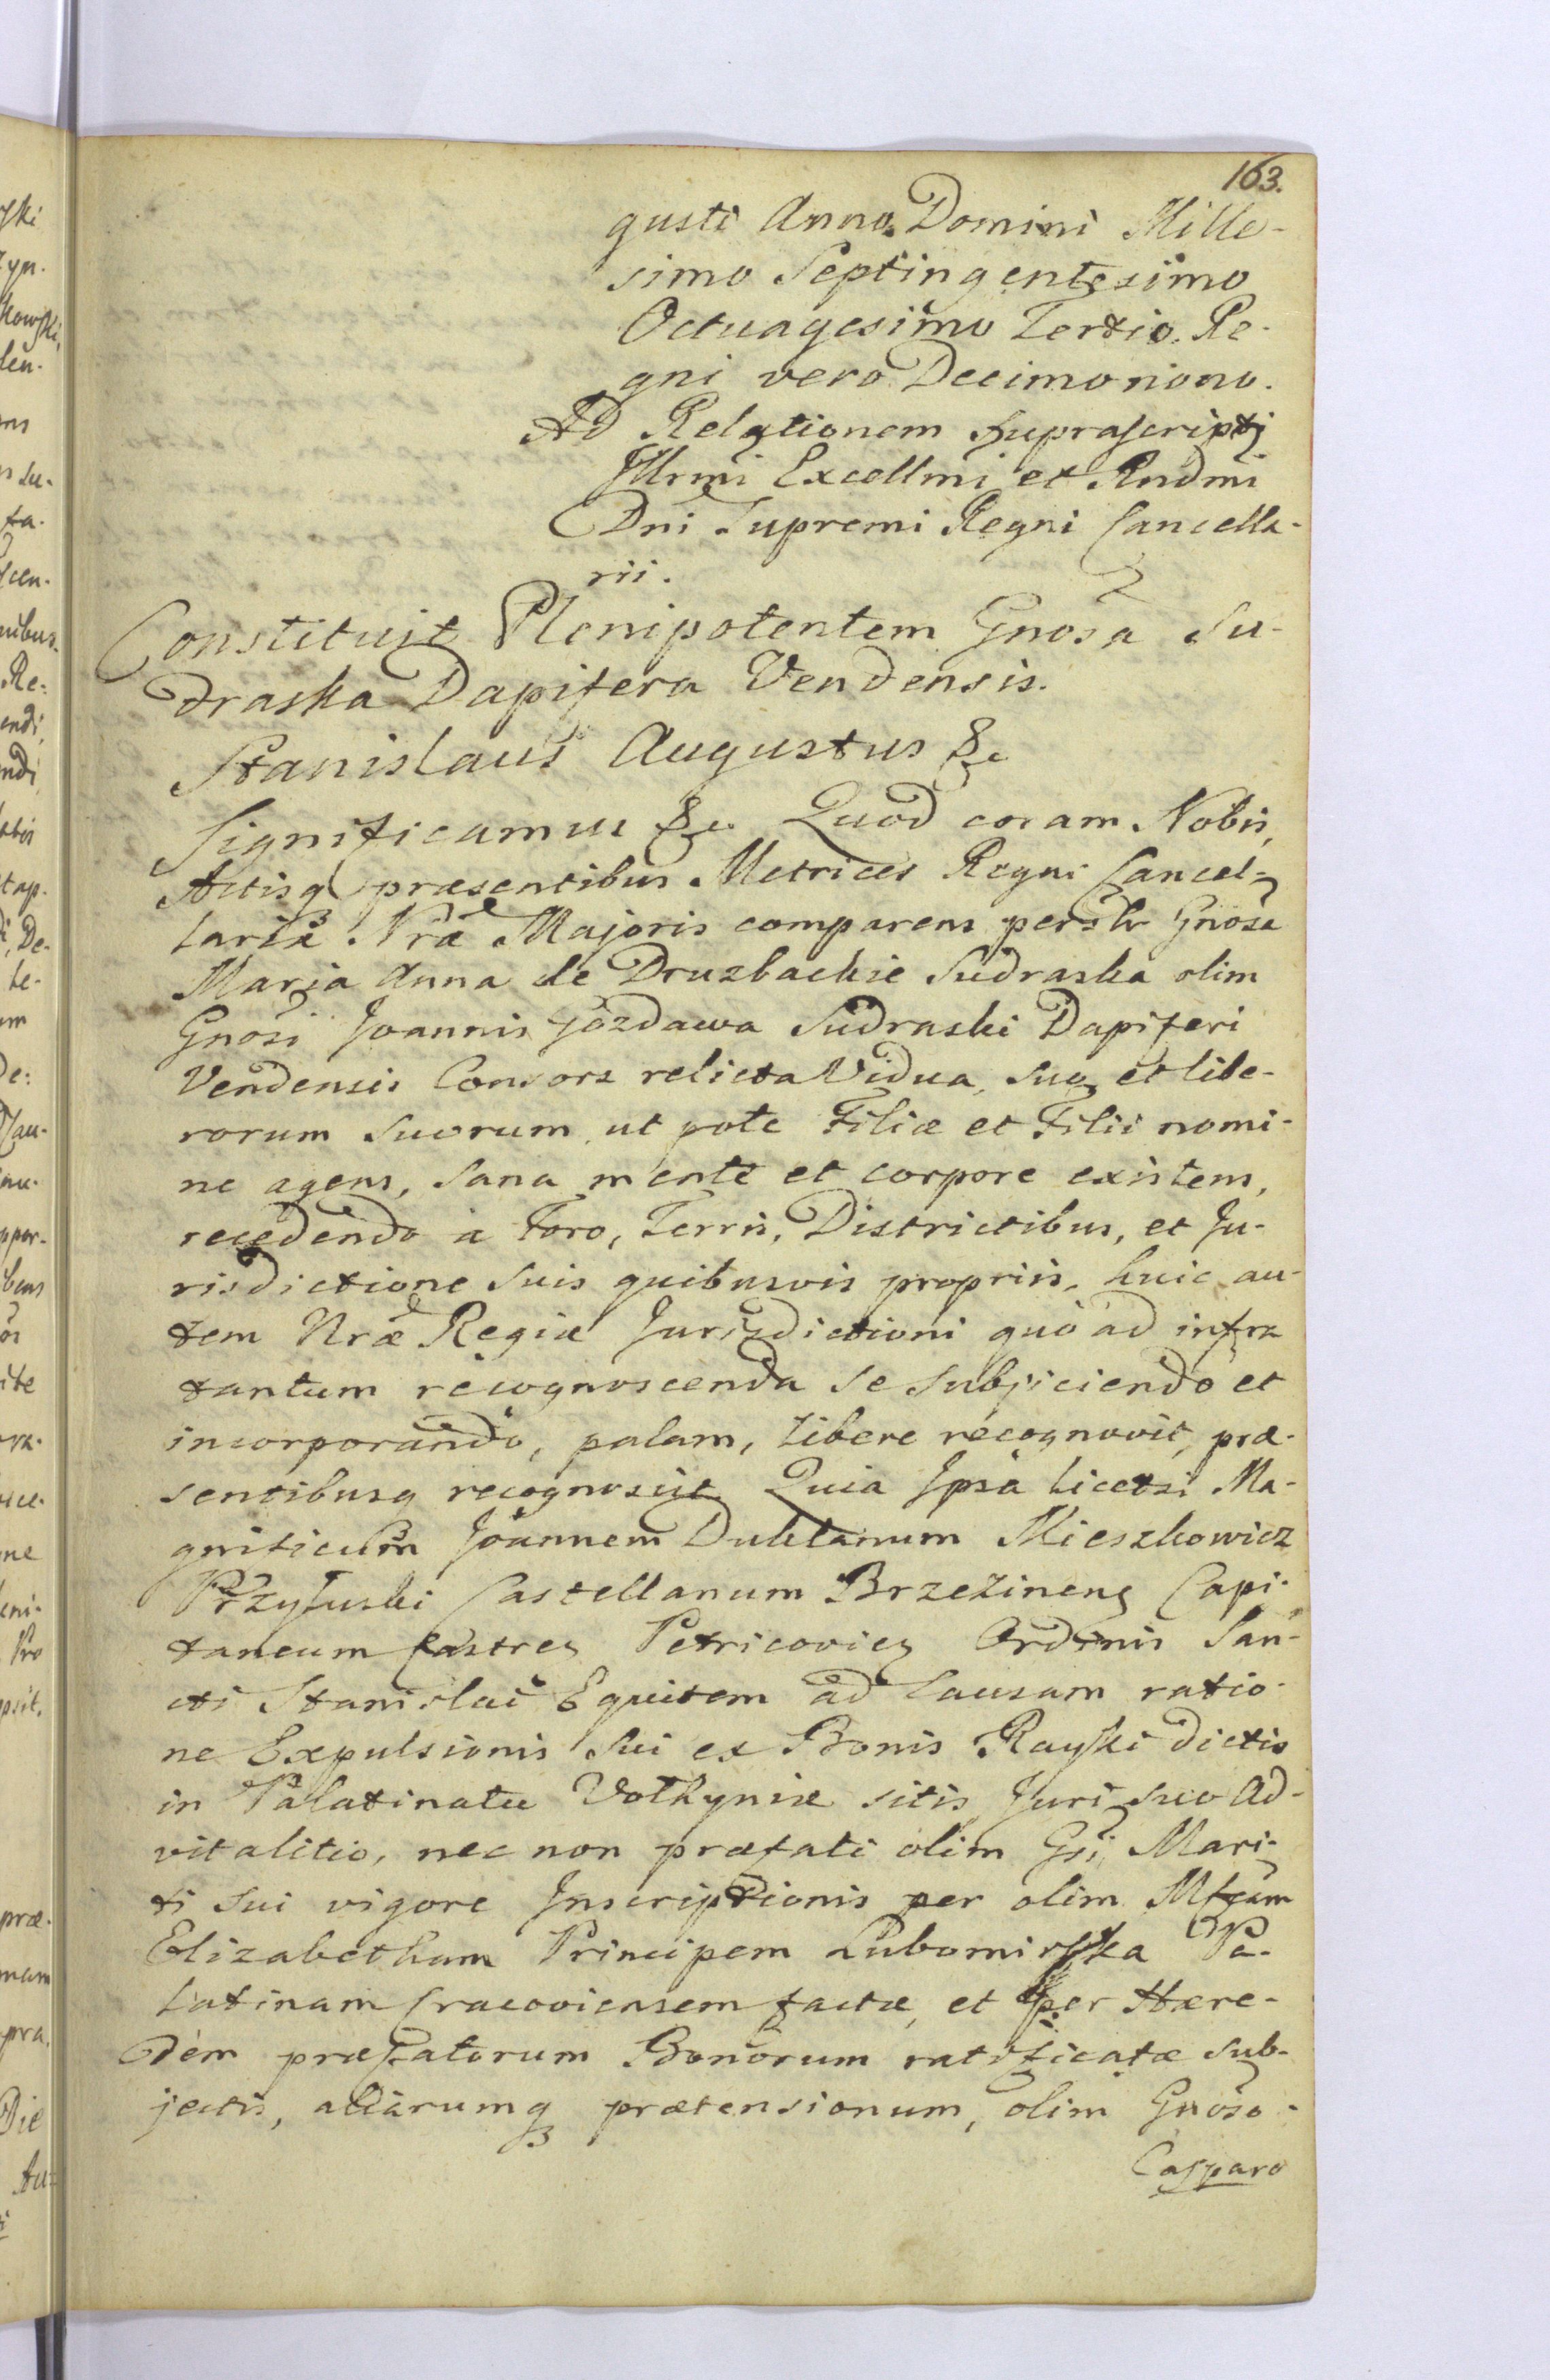 163.
gusti Anno Domini Mille-
simo Septingentesimo
Octuagesimo Tertio. Re-
gni vero Decimonono.
Ad Relationem suprascripti
Illrmi Excellmi et Rndmi
Dni Supremi Regni Cancella-
rii.
Constituit Plenipotentem Gnosa Su-
draska Dapifera Vendensis.
Stanislaus Augustus &c
Significamus &c. Quod coram Nobis,
Actisq præsentibus Metrices Regni Cancel-
lariæ Nræ Majoris comparens persr Gnosa
Maria Anna de Druzbackie Sudraska olim
Gnosi Joannis Gozdawa Sudraski Dapiferi
Vendensis Consors relicta Vidua, suo et libe-
rorum suorum, ut pote Filiæ et Filii nomi-
ne agens, sana mente et corpore existens,
recedendo a Foro, Terris, Districtibus, et Ju-
risdictione suis quibusvis propriis, huic au-
tem Nræ Regiæ Jurisdictioni quo ad infra
tantum recognoscenda se subjiciendo et
incorporando, palam, libere recognovit, præ-
sentibusq recognoscit. Quia Ipsa licetsi Ma-
gnificum Joannem Duklanum Mieszkowicz
Przyłuski Castellanum Brzezinens Capi-
taneum Castren Petricovien Ordinis San-
cti Stanislai Equitem ad Causam ratio-
ne Expulsionis sui ex Bonis Rayski dictis
in Palatinatu Volhyniæ sitis Juri suo Ad-
vitalitio, nec non præfati olim Gsi Mari-
ti sui vigore Inscriptionis per olim Mfcam
Elizabetham Principem Lubomirska Pa-
latinam Cracoviensem factæ, et per Hære-
dem præfatorum Bonorum ratificatæ sub-
jectis, aliarumq prætensionum, olim Gnoso
Casparo